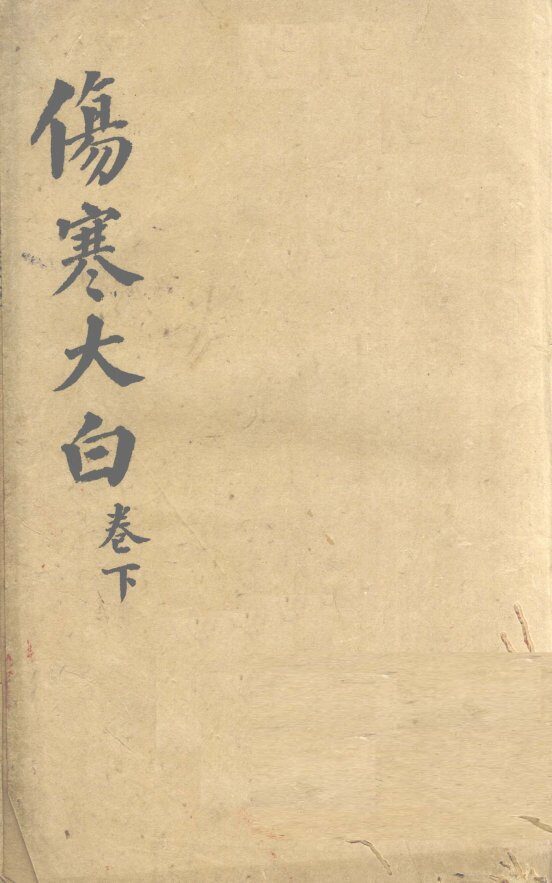 傷寒大白卷下